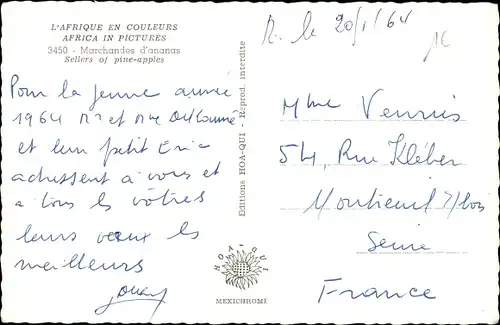 L'AFRIQUE EN COULEURS
AFRICA IN PICTURES
3450 - Marchandes d'ananas
Sellers of pine-apples
Pour la jeune année
1964 Mr et Mme
et leur petit Eric
adressent à vous et
à tous les vôtres
leurs voeux les
meilleurs
Editions HOA-QUI - Reprod. interdite
HOA-QUI
MEXICHROME
R. le 20/1/64
Mme
54, Rue Kléber
Montreuil s/bois
Seine
France